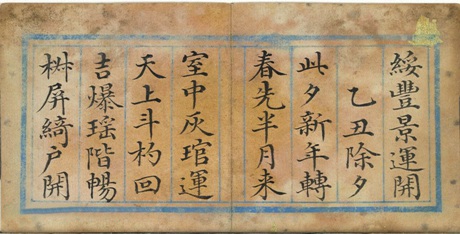 綏豐景運開
乙丑除夕
此夕新年轉
春先半月来
室中灰琯運
天上斗杓回
吉爆瑶階暢
椒屏綺戶開